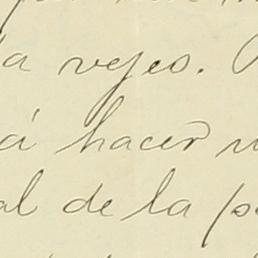 la vejes.
á hacer
al de la